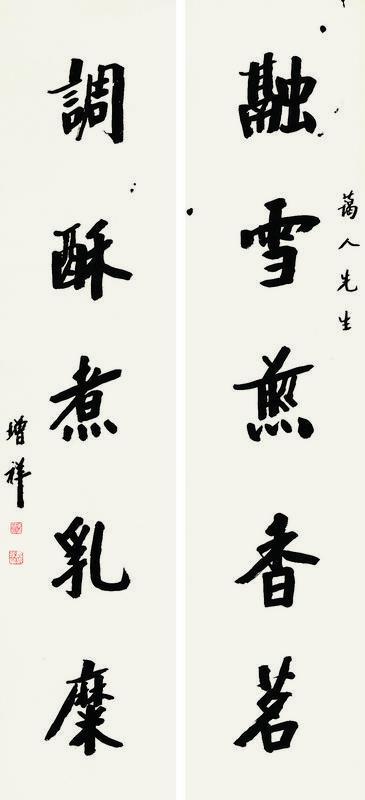 融雪煎香茗
調酥煮乳糜
藹人先生
增祥